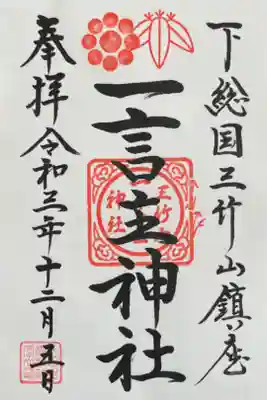 下総国三竹山鎮座
一言主神社
奉拝令和三年十二月五日